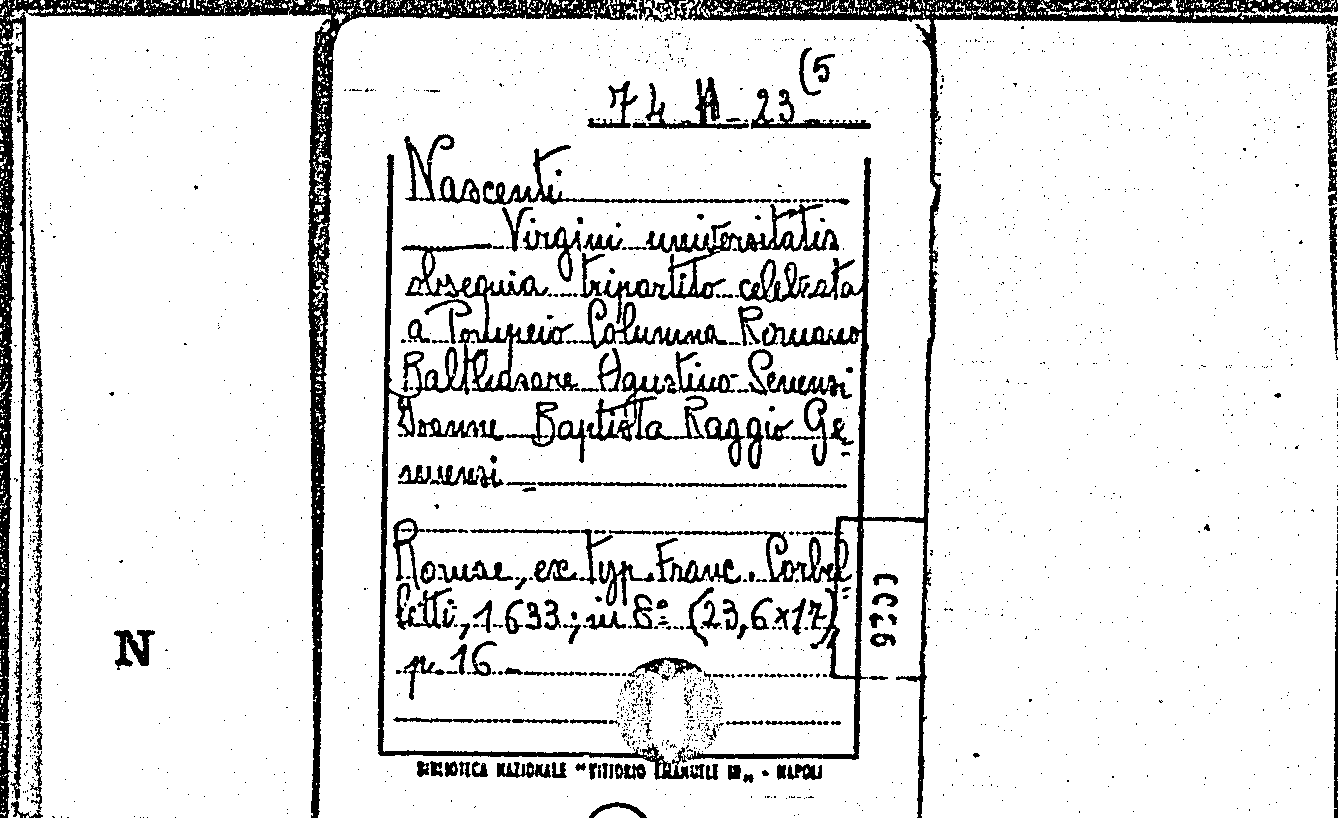 74 H 23 (5
Nascenti
Virgini universitatis
obsequia tripartito celebrata
a Pompeio Columna Romano
Balthasare Agustino Senensi
Ioanne Baptista Raggio Ge=
nuensi
Romae, ex typ. Franc. Corbel=
letti, 1633; in 8º (23,6x17),
p. 16
N
BIBLIOTECA NAZIONALE "VITTORIO EMANUELE III„ - NAPOLI